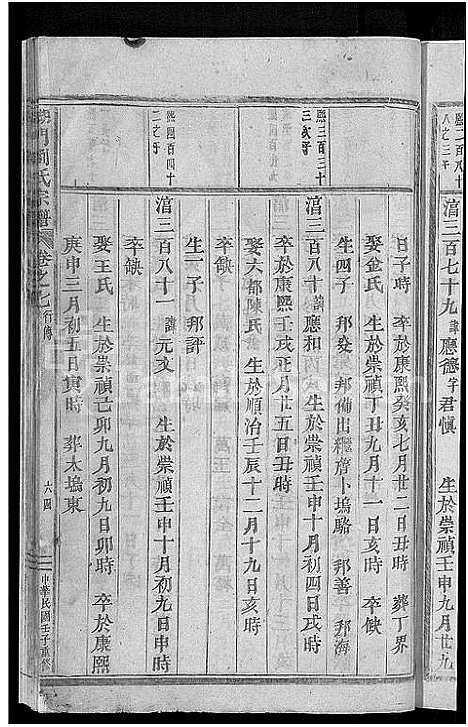 熙二百八十
八之三子
湻三百七十九 諱應德 字君慎 生於崇禎壬申九月廿九
日子時 卒於康熙癸亥七月廿二日丑時 葬丁界
娶金氏 生於崇禎丁丑九月十一日亥時 卒缺
生四子 邦發 邦備出繼齊卜塢 邦善 邦海
熙三百三十
三之子
湻三百八十 諱應和 生於崇禎壬申十月初四日戌時
卒於康熙壬戌正月廿五日丑時
娶六都陳氏 生於順治壬辰十二月十九日亥時
卒缺
生一子 邦評
熙四百四十
二之子
湻三百八十一 諱元文 生於崇禎壬申十月初九日申時
卒缺
娶王氏 生於崇禎己卯九月初九日卯時 卒於康熙
庚申三月初五日寅時 葬木塢東
劉氏宗譜 卷之七 行傳 六四 中華民國壬子重修